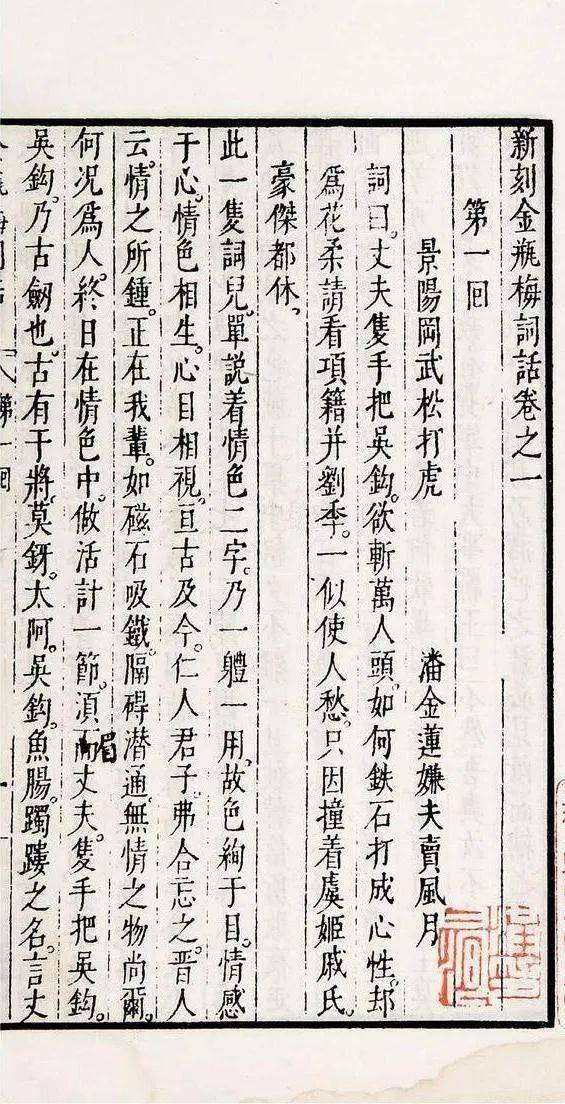 新刻金瓶梅詞話卷之一
第一回
景陽岡武松打虎　潘金蓮嫌夫賣風月
詞曰。丈夫隻手把吳鈎。欲斬萬人頭。如何鉄石打成心性。却
爲花柔請看項籍并劉季。一似使人愁。只因撞着虞姬戚氏。
豪傑都休。
此一隻詞兒。單說着情色二字。乃一體一用。故色絢于目。情感
于心。情色相生。心目相視。亘古及今。仁人君子。弗合忘之。晋人
云。情之所鍾。正在我輩。如磁石吸鐵。隔碍潜通。無情之物尚爾。
何况爲人。終日在情色中。做活計一節。須而丈夫。隻手把吳鈎。
眉
吳鈎。乃古劒也。古有干將。莫鋣。太阿。吳鈎。魚腸。躅鏤之名。言丈
第一回